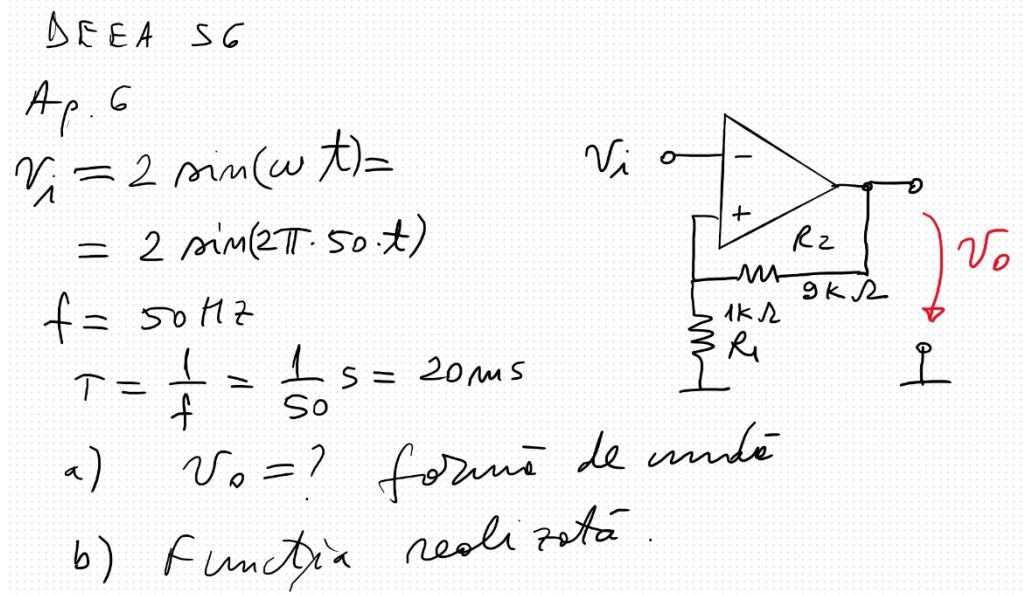 DEEA S6
Ap. 6
vi = 2 sin(ω t)=
= 2 sin(2π·50·t)
f = 50 Hz
T = 1/f = 1/50 s = 20 ms
a) vo = ? formă de undă
b) Funcția realizată.
vi
-
+
R2
9KΩ
1KΩ
R1
vo